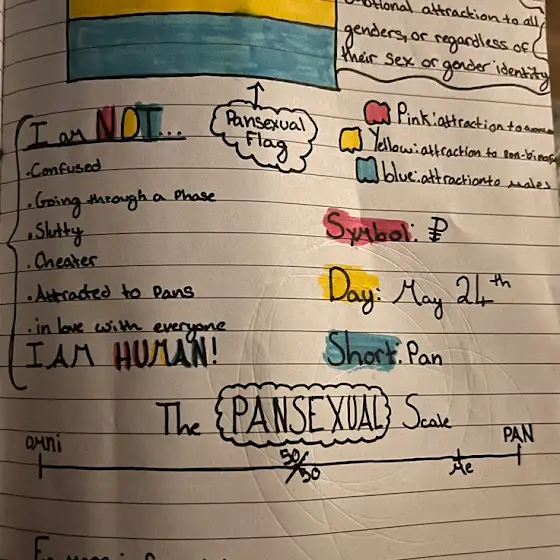 attraction to all
genders, or regardless of
their sex or gender identity
Pansexual
Flag
Pink: attraction to
Yellow: attraction to non-bina
blue: attraction to males
I am NOT...
.Confused
.Going through a Phase
.Slutty
.Cheater
.Attracted to Pans
.in love with everyone
I AM HUMAN!
Symbol:
Day: May 24th
Short: Pan
The PANSEXUAL Scale
omni
50/50
Me
PAN